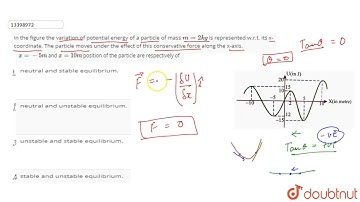 13398972
In the figure the variation of potential energy of a particle of mass m = 2kg is represented w.r.t. its x-
coordinate. The particle moves under the effect of this conservative force along the x-axis.
x = -5m and x = 10m position of the particle are respectively of
neutral and stable equilibrium.
neutral and unstable equilibrium.
unstable and stable equilibrium.
stable and unstable equilibrium.
F = - (δU/δx) î
F = 0
θ = 0
Tanθ = 0
U(in J)
20
15
15
10
-10
-5
2
5
10
X(in metre)
-15
-20
← -ve
Tanθ = +ve
doubtnut